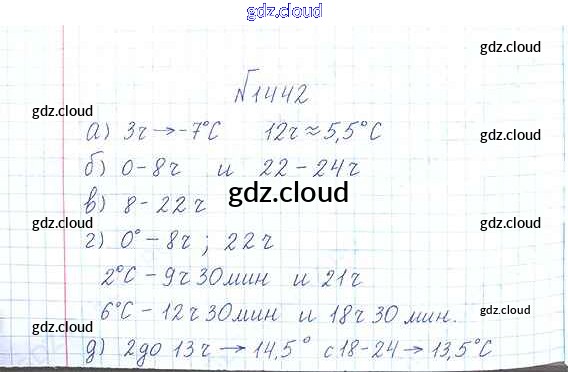 gdz.cloud
gdz.cloud
№1442
gdz.cloud
gdz.cloud
а) 3ч → -7°C 12ч ≈ 5,5°C
б) 0-8ч и 22-24ч
gdz.cloud
в) 8-22ч
gdz.cloud
gdz.cloud
г) 0° - 8ч ; 22ч
2°C - 9ч 30мин и 21ч
6°C - 12ч 30мин и 18ч 30 мин.
gdz.cloud
gdz.cloud
д) 2 до 13ч → 14,5° с 18-24 → 13,5°C